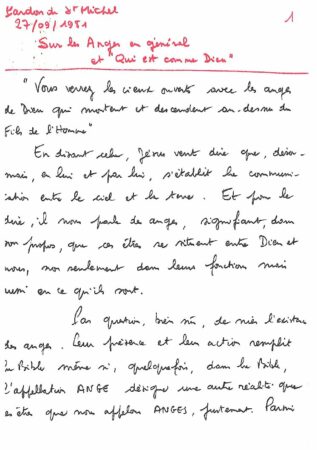 Landon de St Michel
27/09/1981
1
Sur les Anges en général
et "Qui est comme Dieu"
"Vous verrez les cieux ouverts avec les anges
de Dieu qui montent et descendent au-dessus du
Fils de l'Homme"
En disant cela, Jésus veut dire que, désor-
mais, en lui et par lui, s'établit la communi-
cation entre le ciel et la terre. Et pour le
dire, il nous parle des anges, signifiant, dans
son propos, que ces êtres se situent entre Dieu et
nous, non seulement dans leurs fonctions mais
aussi en ce qu'ils sont.
Pas question, bien sûr, de nier l'existence
des anges. Leur présence et leur action remplit
la Bible même si, quelquefois, dans la Bible,
l'appellation ANGE désigne une autre réalité que
ces êtres que nous appelons ANGES, justement. Parmi